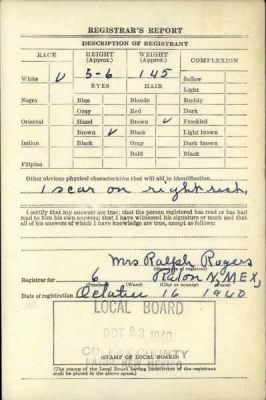 REGISTRAR'S REPORT
DESCRIPTION OF REGISTRANT
RACE HEIGHT (Approx.) WEIGHT (Approx.) COMPLEXION
White ✓ 5-6 145 Sallow
EYES HAIR Light
Negro Blue Blonde Ruddy
Gray Red Dark
Oriental Hazel Brown ✓ Freckled
Brown ✓ Black Light brown
Indian Black Gray Dark brown
Bald Black
Filipino
Other obvious physical characteristics that will aid in identification
1 scar on right
I certify that my answers are true; that the person registered has read or has had read to him his own answers; that I have witnessed his signature or mark and that all of his answers of which I have knowledge are true, except as follows:
Mrs Ralph Rogers
(Signature of registrar)
Registrar for 6 Raton N. MEX,
(Precinct) (Ward) (City or county) (State)
Date of registration October 16 1940
LOCAL BOARD
OCT 23 1940
COLFAX COUNTY
RATON, NEW MEXICO
(STAMP OF LOCAL BOARD)
(The stamp of the Local Board having jurisdiction of the registrant shall be placed in the above space.)